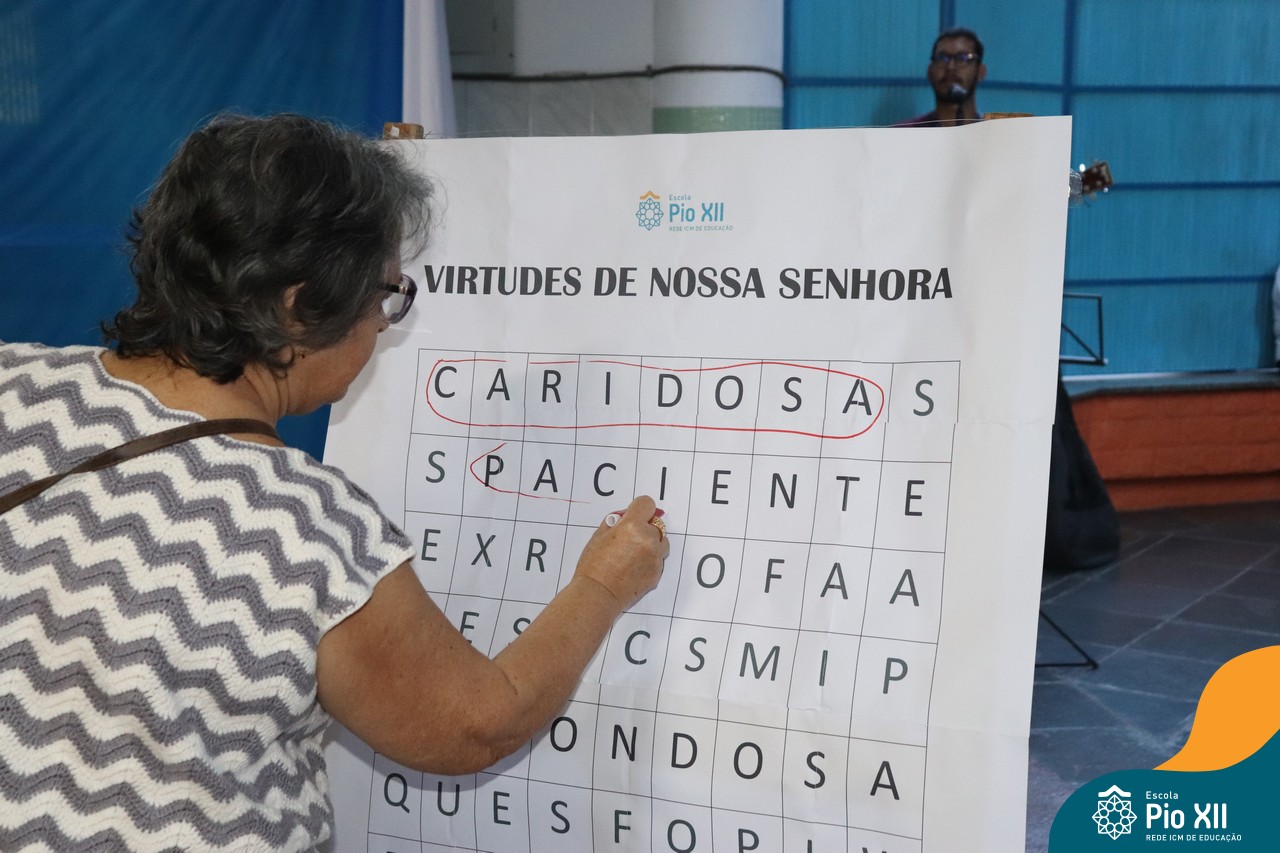 Escola
Pio XII
REDE ICM DE EDUCAÇÃO
VIRTUDES DE NOSSA SENHORA
C A R I D O S A S
S P A C I E N T E
E X R O F A A
E S C S M I P
O N D O S A
Q U E S F O P I
Escola
Pio XII
REDE ICM DE EDUCAÇÃO